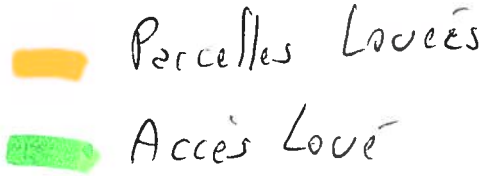 Parcelles Louées
Accès Loué